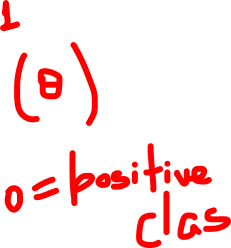 1
(8)
0 = positive
clas